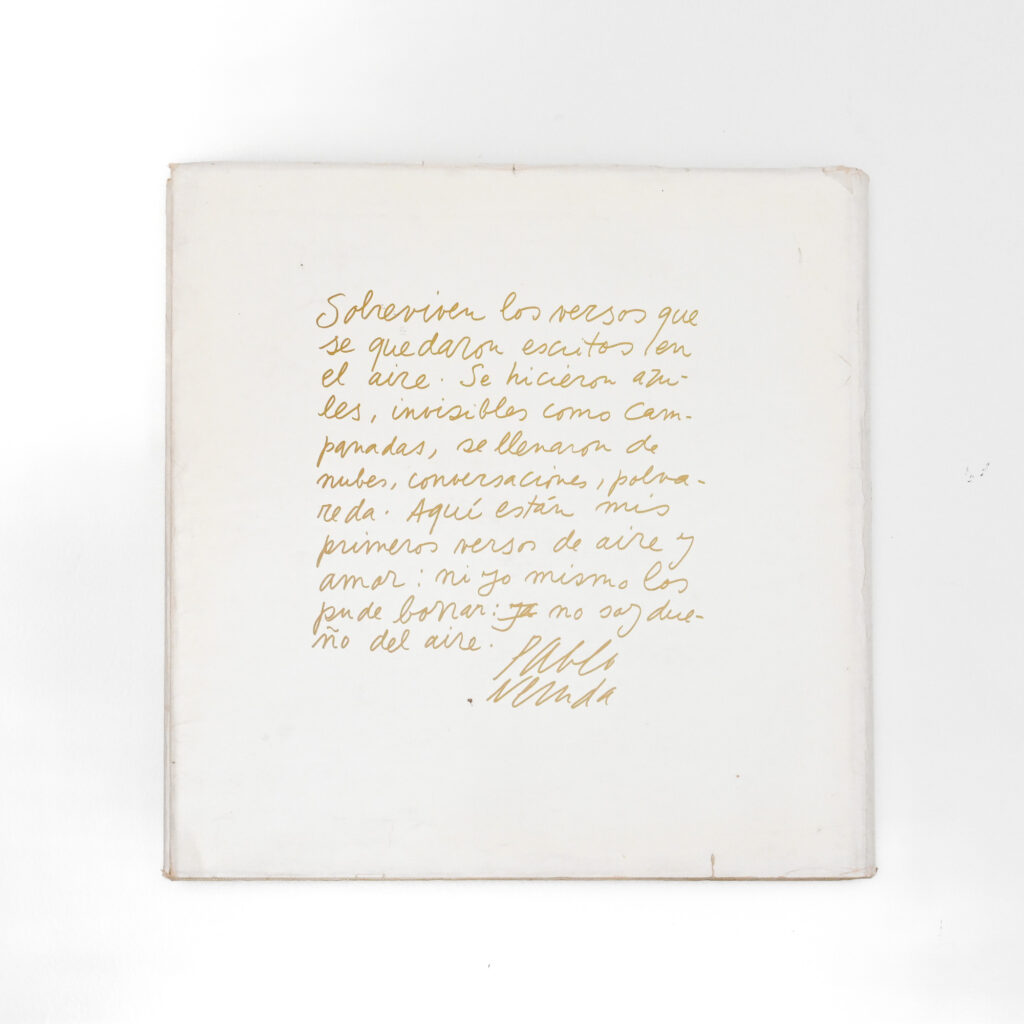 Sobreviven los versos que
se quedaron escritos en
el aire. Se hicieron azu-
les, invisibles como cam-
panadas, se llenaron de
nubes, conversaciones, polva-
reda. Aquí están mis
primeros versos de aire y
amor: ni yo mismo los
pude borrar: ya no soy due-
ño del aire.
Pablo
Neruda